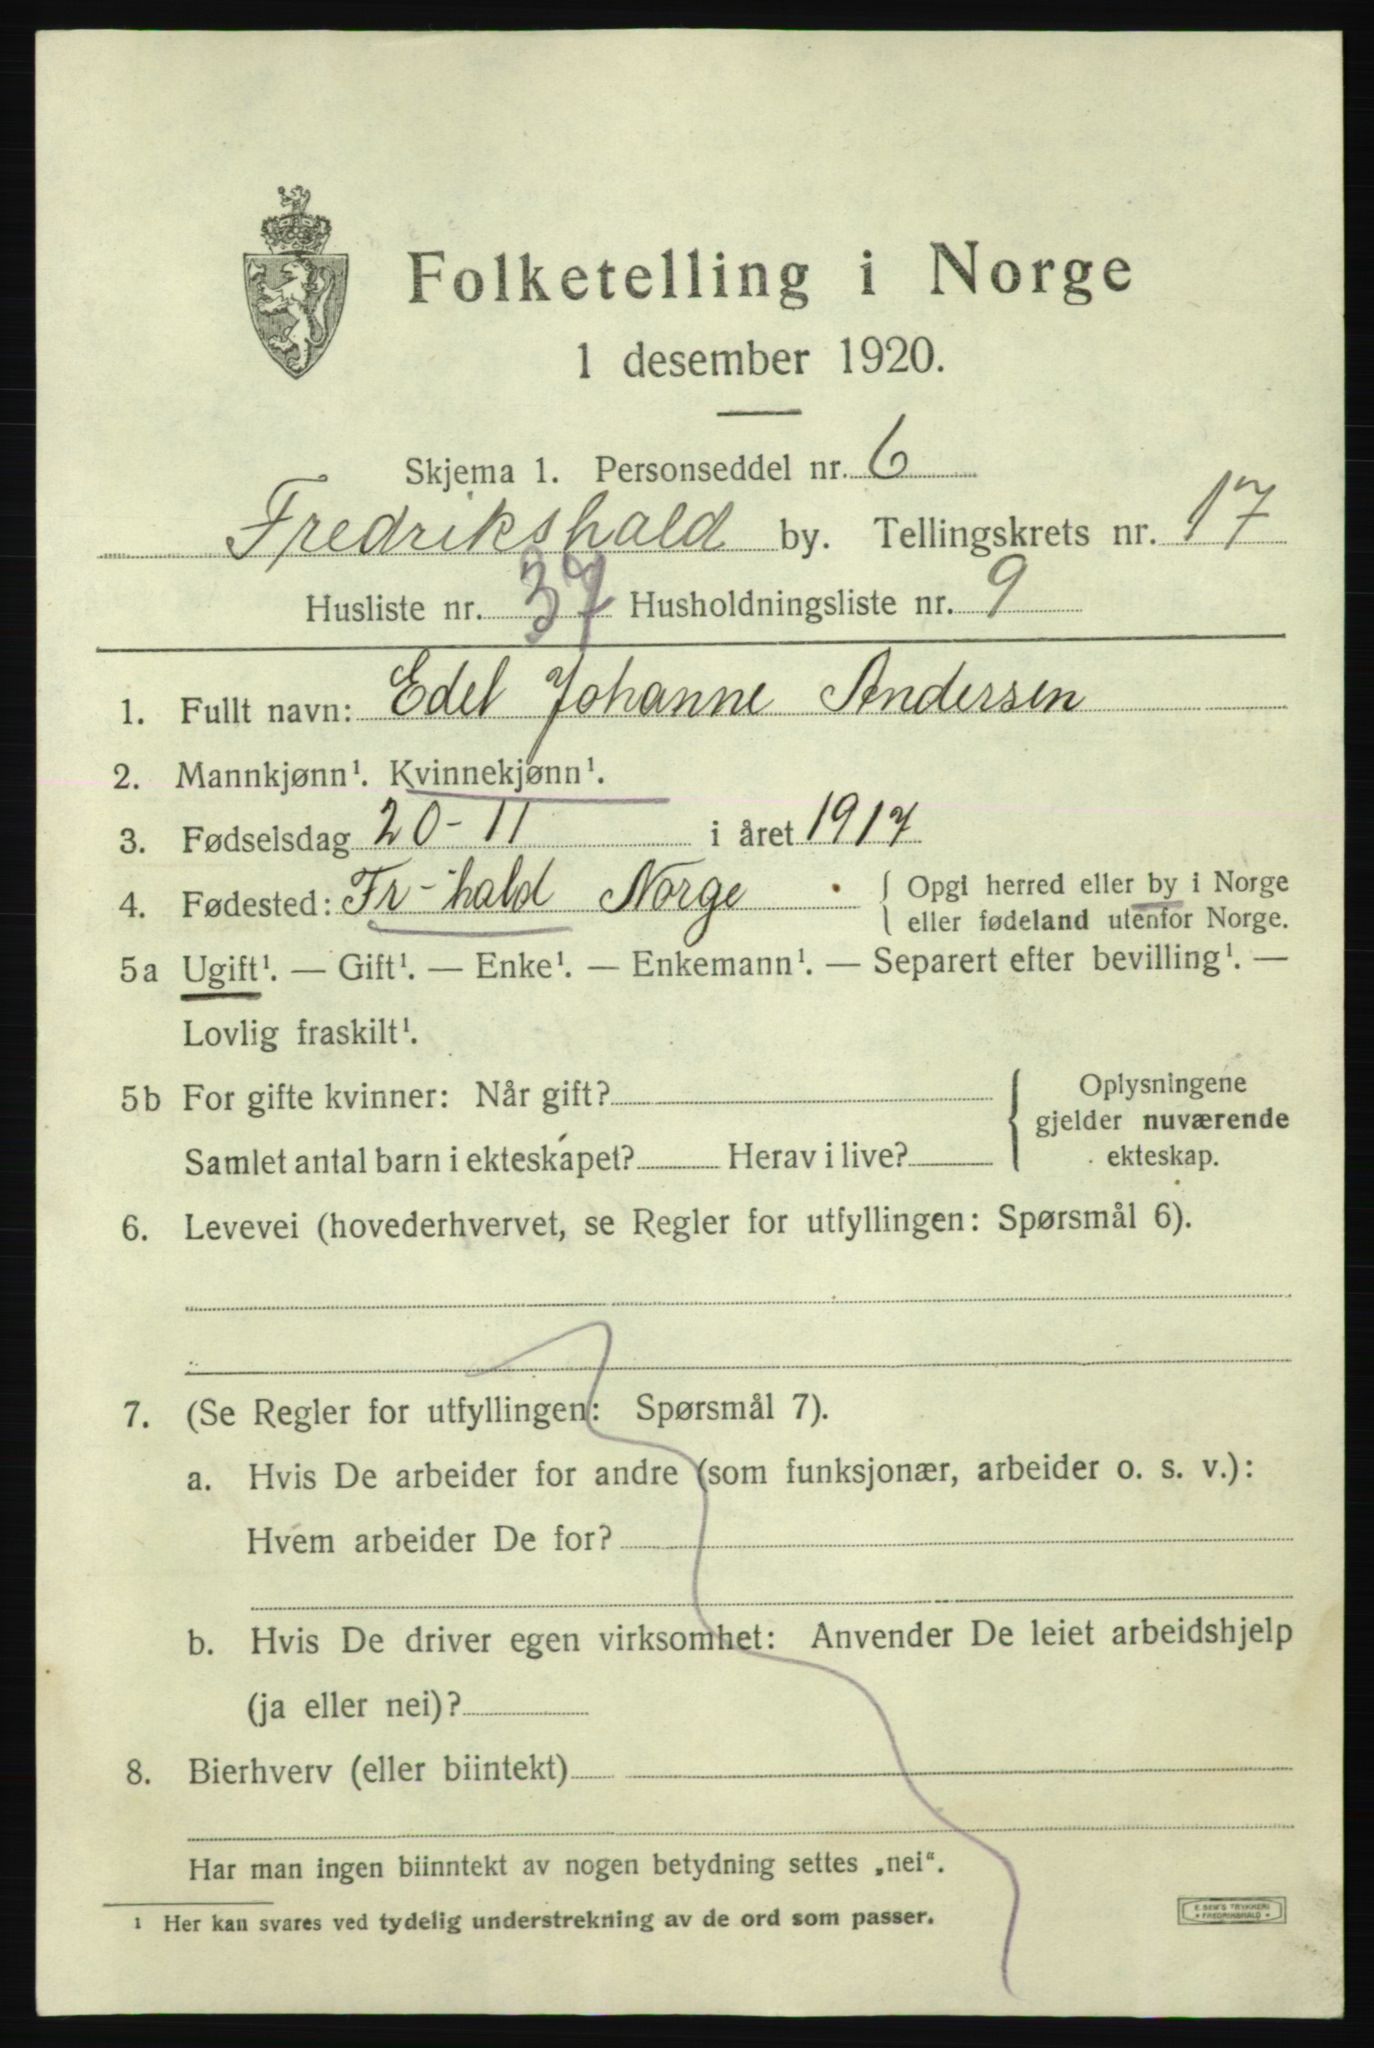 Folketelling i Norge
1 desember 1920.
Skjema 1. Personseddel nr. 6
Fredrikshald by. Tellingskrets nr. 17
Husliste nr. 37 Husholdningsliste nr. 9
1. Fullt navn: Edel Johanne Andersen
2. Mannkjønn¹. Kvinnekjønn¹.
3. Fødselsdag 20-11 i året 1917
4. Fødested: Fr-hald Norge { Opgi herred eller by i Norge
eller fødeland utenfor Norge.
5a Ugift¹. — Gift¹. — Enke¹. — Enkemann¹. — Separert efter bevilling¹. —
Lovlig fraskilt¹.
5b For gifte kvinner: Når gift?
Samlet antal barn i ekteskapet? Herav i live?
{ Oplysningene
gjelder nuværende
ekteskap.
6. Levevei (hovederhvervet, se Regler for utfyllingen: Spørsmål 6).
7. (Se Regler for utfyllingen: Spørsmål 7).
a. Hvis De arbeider for andre (som funksjonær, arbeider o. s. v.):
Hvem arbeider De for?
b. Hvis De driver egen virksomhet: Anvender De leiet arbeidshjelp
(ja eller nei)?
8. Bierhverv (eller biintekt)
Har man ingen biinntekt av nogen betydning settes „nei“.
¹ Her kan svares ved tydelig understrekning av de ord som passer.
E. SEM'S TRYKKERI
• FREDRIKSHALD •